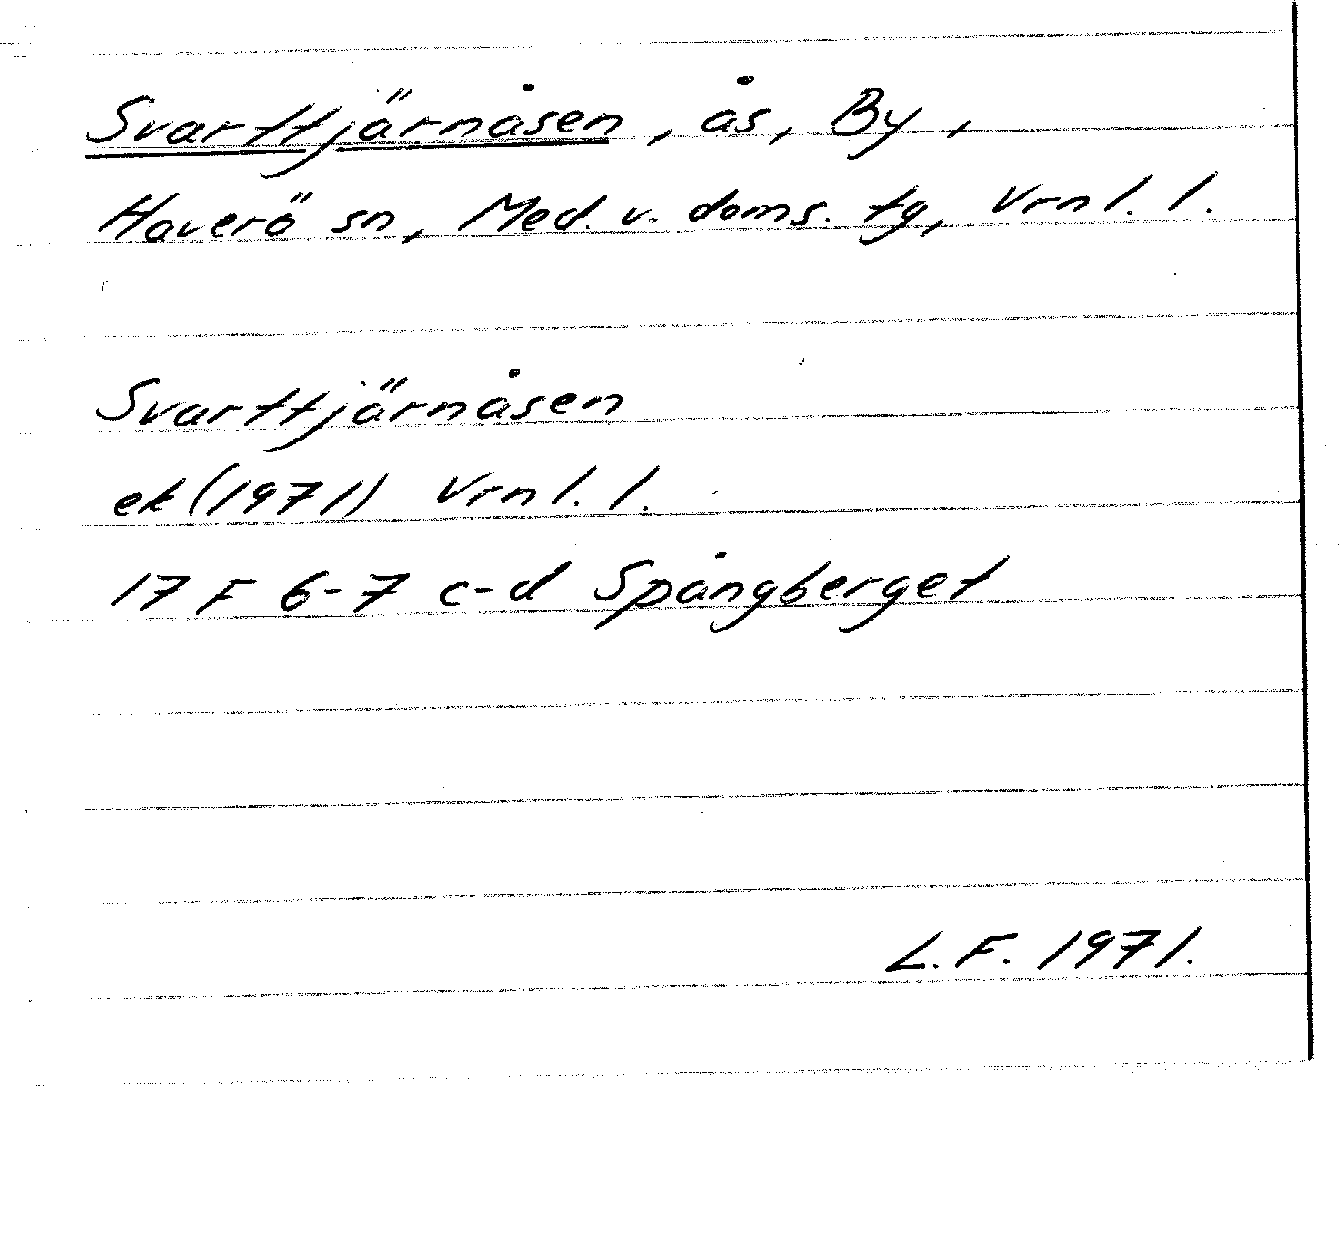 Svarttjärnåsen, ås, By,
Haverö sn, Med. v. doms. tg, Vrnl. l.
Svarttjärnåsen
ek (1971) Vrnl. l.
17 F 6-7 c-d Spångberget
L.F. 1971.